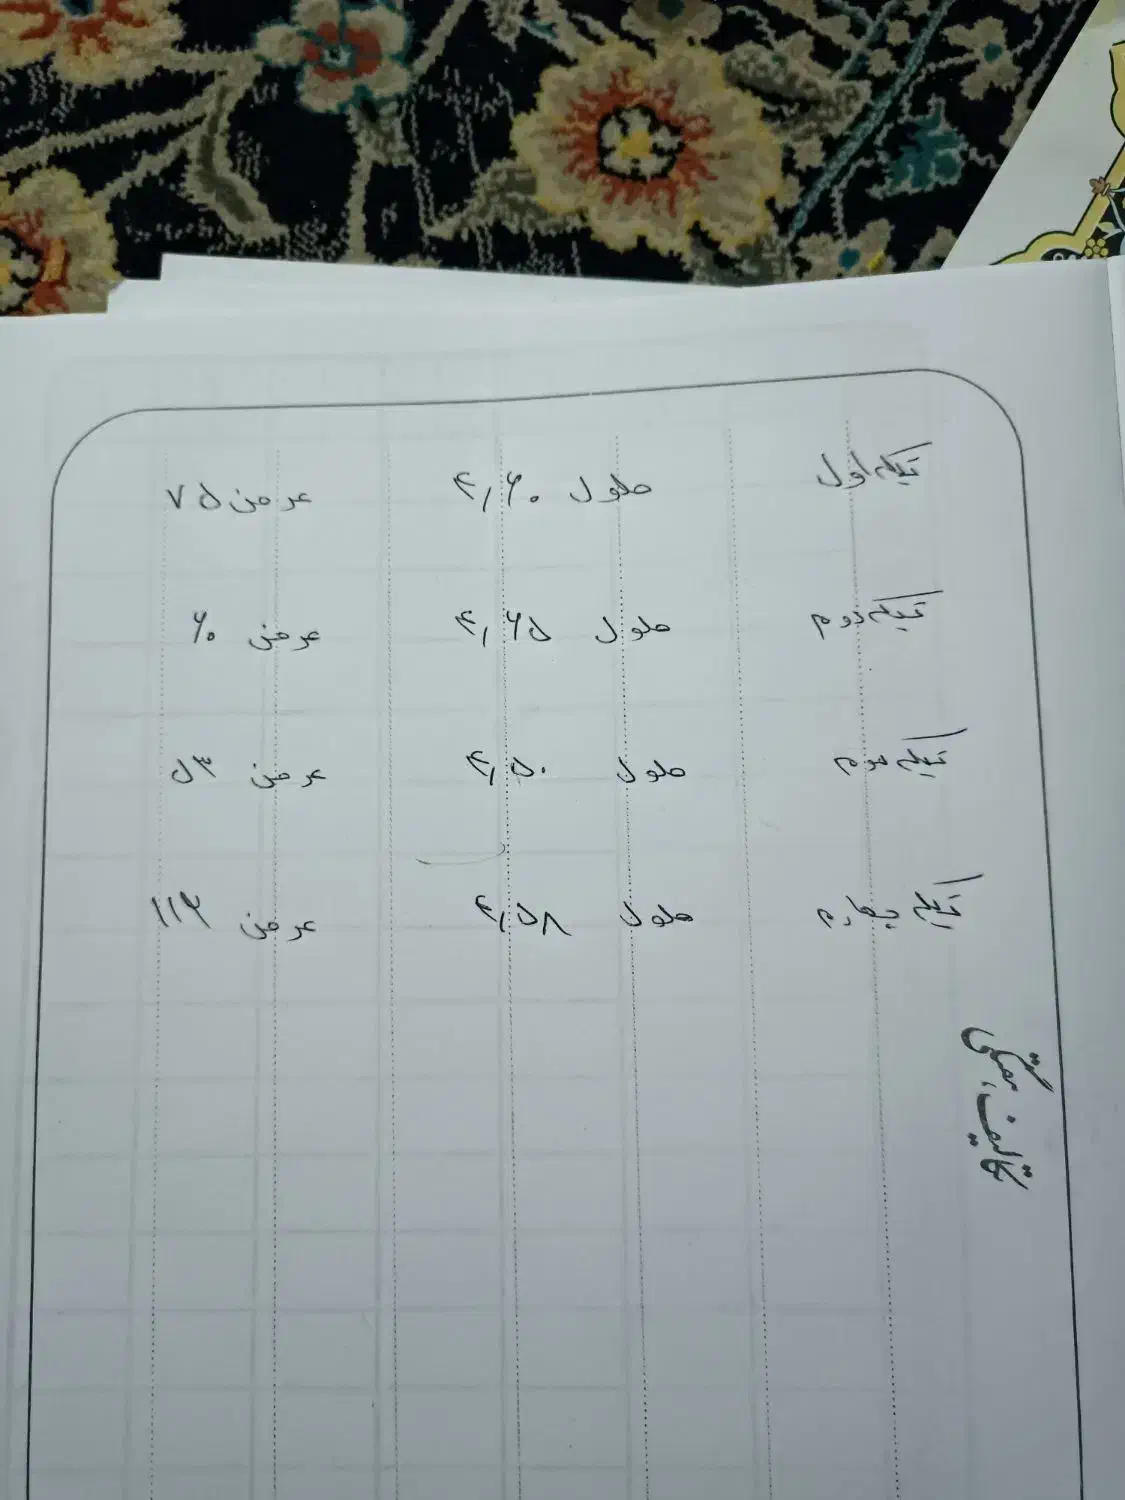 تیکه اول طول ۴٫۶۰ عرض ۷۵
تیکه دوم طول ۴٫۶۵ عرض ۶۰
تیکه سوم طول ۴٫۵۰ عرض ۵۳
تیکه چهارم طول ۴٫۵۸ عرض ۱۱۳
تکالیف هفتگی